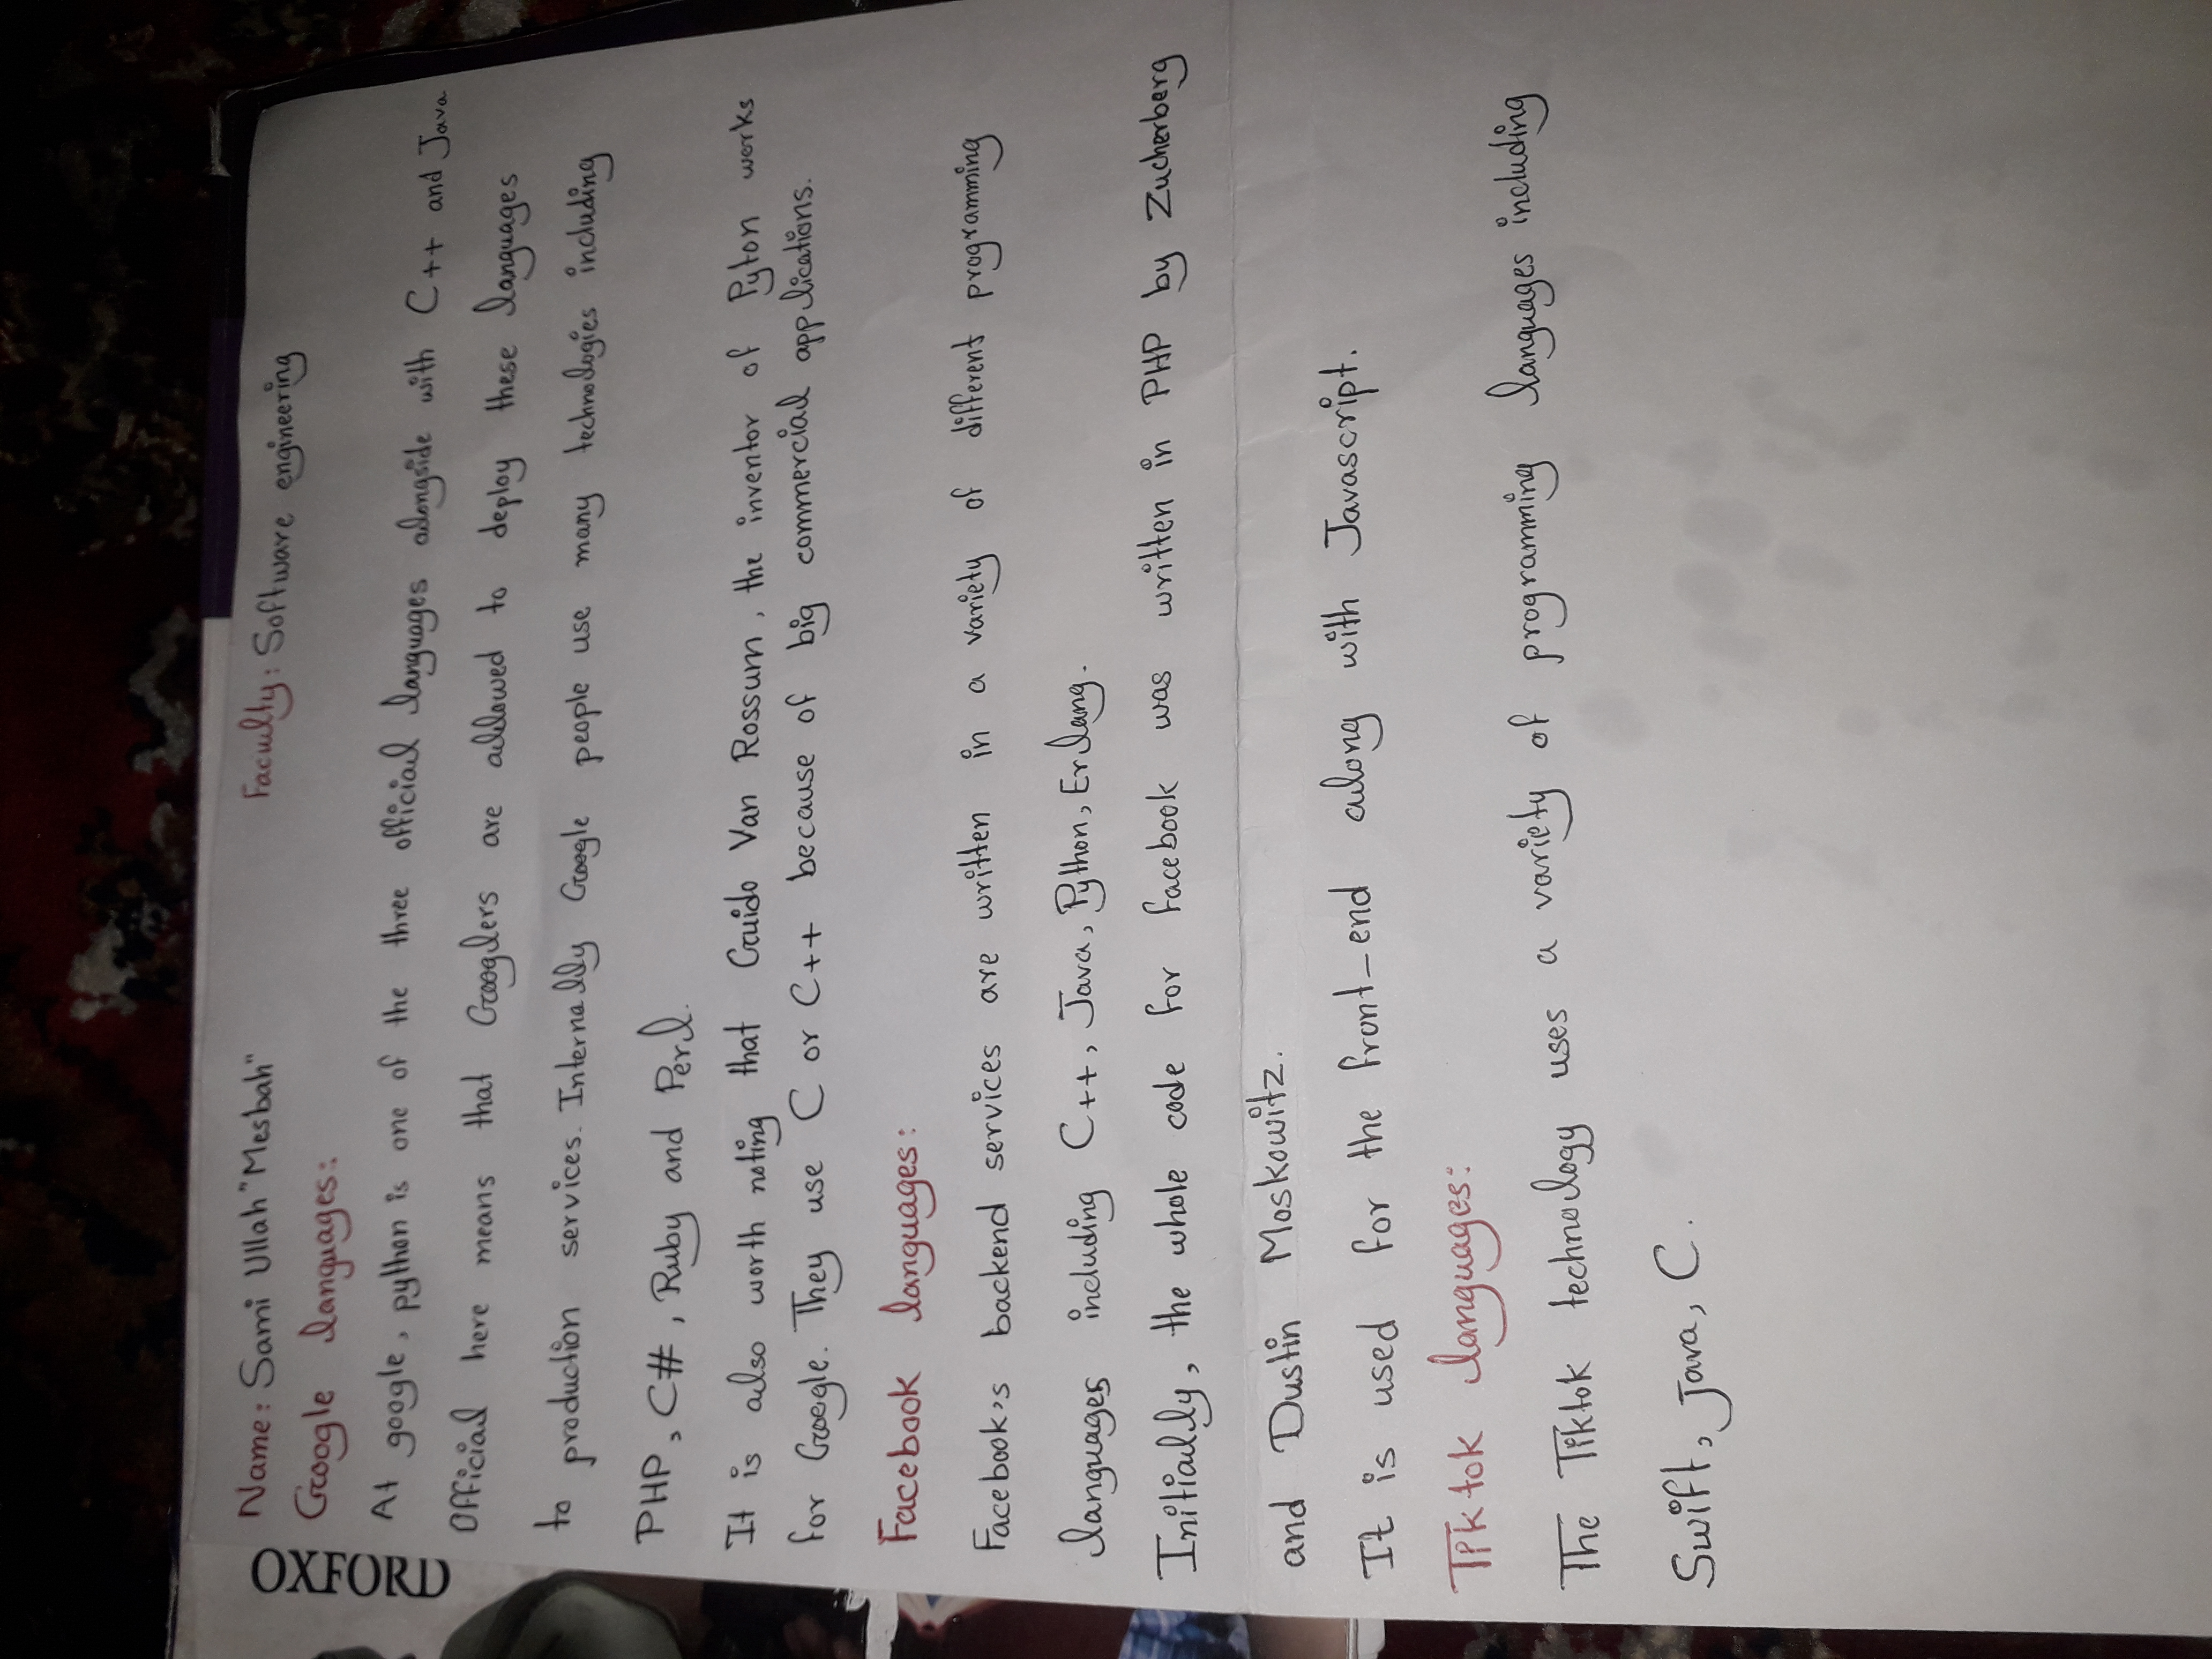 OXFORD
Name: Sami Ullah "Mesbah" Faculty: Software engineering
Google languages:
At google, python is one of the three official languages alongside with C++ and Java
Official here means that Googlers are allowed to deploy these languages
to production services. Internally Google people use many technologies including
PHP, C#, Ruby and Perl.
It is also worth noting that Guido Van Rossum, the inventor of Pyton works
for Google. They use C or C++ because of big commercial applications.
Facebook languages:
Facebook's backend services are written in a variety of different programming
languages including C++, Java, Python, Erlang.
Initially, the whole code for facebook was written in PHP by Zucherberg
and Dustin Moskowitz.
It is used for the front_end along with Javascript.
Tiktok languages:
The Tiktok technology uses a variety of programming languages including
Swift, java, C.